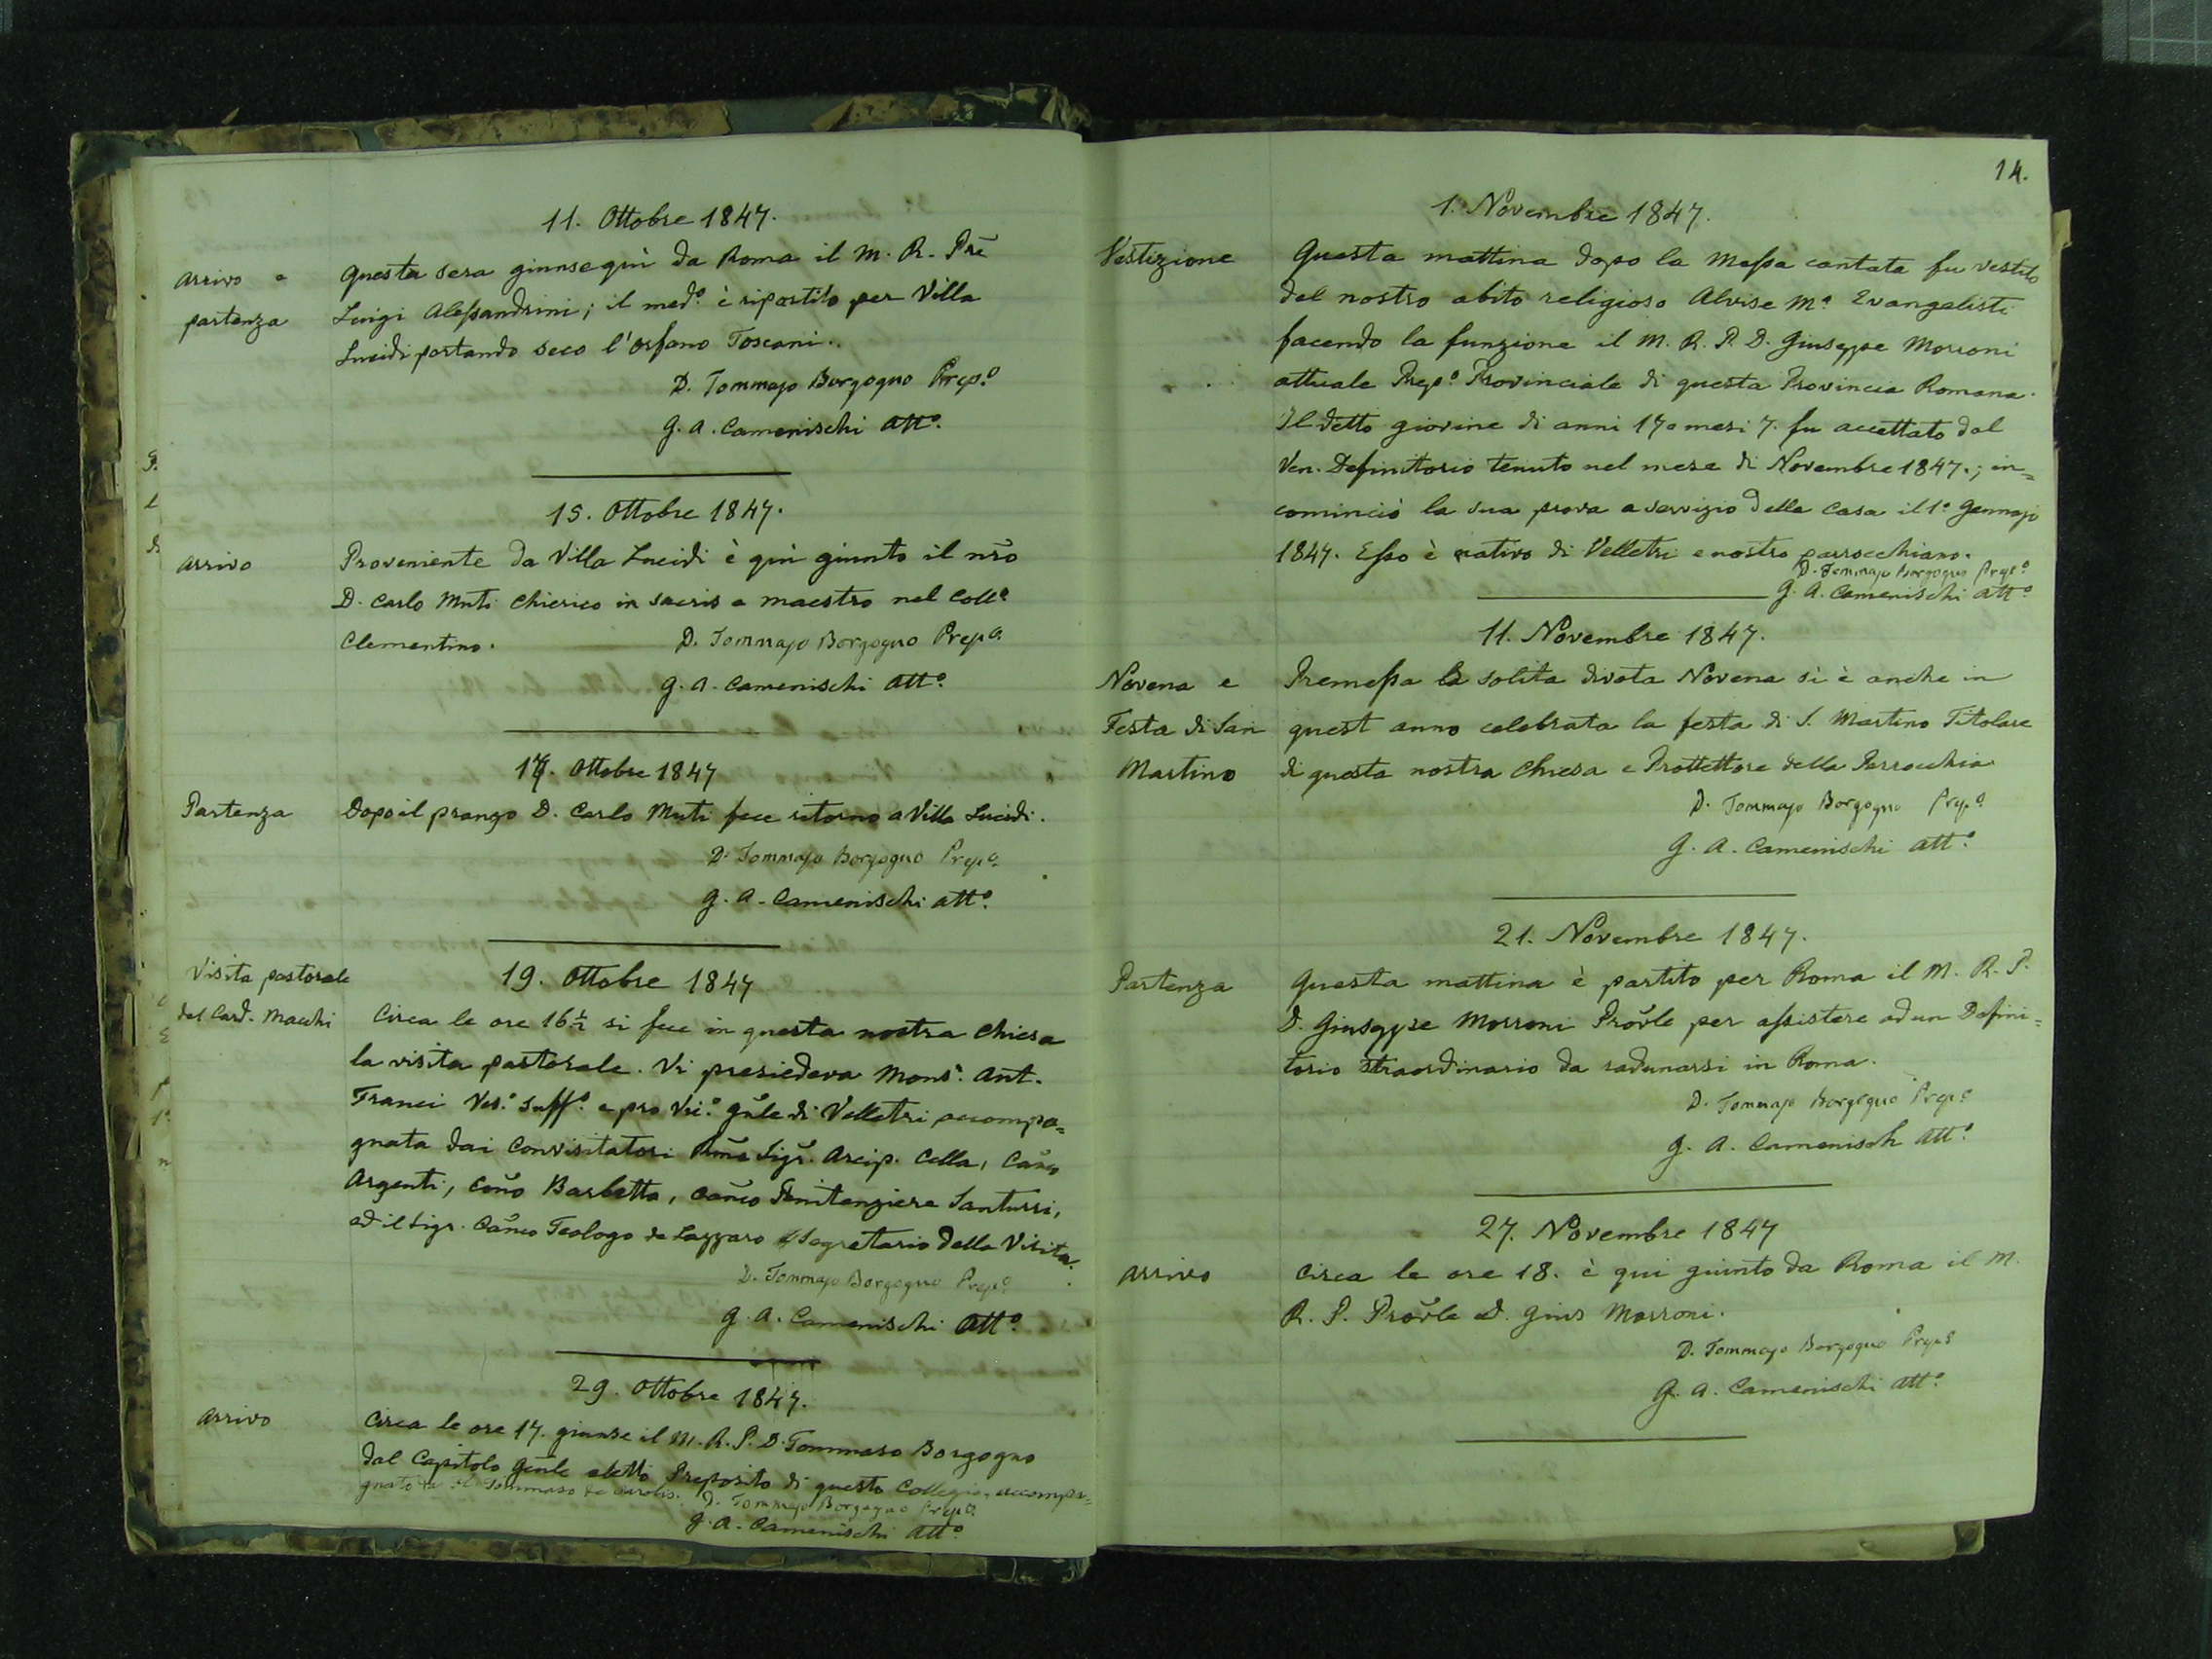 11. Ottobre 1847.
Arrivo e
partenza
Questa sera giunse quì da Roma il M. R. Prē
Luigi Aleſsandrini; il med.º è ripartito per Villa
Lucidi portando seco l'orfano Toscani.
D. Tommaso Borgogno Prep.º
G. A. Camenischi Att.º
15. Ottobre 1847.
Arrivo
Proveniente da Villa Lucidi è quì giunto il nrõ
D. Carlo Muti Chierico in sacris e maestro nel Coll.º
Clementino. D. Tommaso Borgogno Prep.º
G. A. Camenischi Att.º
Ottobre 1847
Partenza
Dopo il pranzo D. Carlo Muti fece ritorno a Villa Lucidi.
D. Tommaso Borgogno Prep.º
G. A. Camenischi Att.º
Visita pastorale
del Card. Macchi
19. Ottobre 1847
Circa le ore 16½ si fece in questa nostra Chiesa
la visita pastorale. Vi presiedeva Mons.r Ant.
Franci Ves.º Suff.º e pro Vic.º Gñle di Velletri accompa=
gnata dai Convisitatori Rm̃i Sigr. Arcip. Cella, Cañco
Argenti, Cañco Barbetta, Cañco Penitenziere Santucci,
ed il Sigr. Cañco Teologo de Lazzaro Segretario della Visita.
D. Tommaso Borgogno Prep.º
G. A. Camenischi Att.º
29. Ottobre 1847.
Arrivo
Circa le ore 17. giunse il M. R. P. D. Tommaso Borgogno
dal Capitolo Genle eletto Preposito di questo Collegio, accompa=
gnato da Tommaso de Carolis. D. Tommaso Borgogno Prep.º
G. A. Camenischi Att.º
14.
1. Novembre 1847.
Vestizione
Questa mattina dopo la Meſsa cantata fu vestito
del nostro abito religioso Alvise M.ª Evangelisti
facendo la funzione il M. R. P. D. Giuseppe Morroni
attuale Prep.º Provinciale di questa Provincia Romana.
Il detto giovine di anni 17 e mesi 7. fu accettato dal
Ven. Definitorio tenuto nel mese di Novembre 1847.; in=
cominciò la sua prova a servizio della Casa il 1.º Gennajo
1847. Eſso è nativo di Velletri e nostro parrocchiano.
D. Tommaso Borgogno Prep.º
G. A. Camenischi Att.º
11. Novembre 1847.
Novena e
Festa di San
Martino
Premeſsa la solita divota Novena si è anche in
quest anno celebrata la festa di S. Martino Titolare
di questa nostra Chiesa e Prottettore della Parrocchia
D. Tommaso Borgogno Prep.º
G. A. Camenischi Att.º
21. Novembre 1847.
Partenza
Questa mattina è partito per Roma il M. R. P.
D. Giuseppe Morroni Prov̄le per aſsistere ad un Defini=
torio straordinario da radunarsi in Roma.
D. Tommaso Borgogno Prep.º
G. A. Camenisch Att.º
27. Novembre 1847
Arrivo
Circa le ore 18. è qui giunto da Roma il M.
R. P. Prov̄le D. Gius Morroni.
D. Tommaso Borgogno Prep.º
G. A. Camenischi Att.º